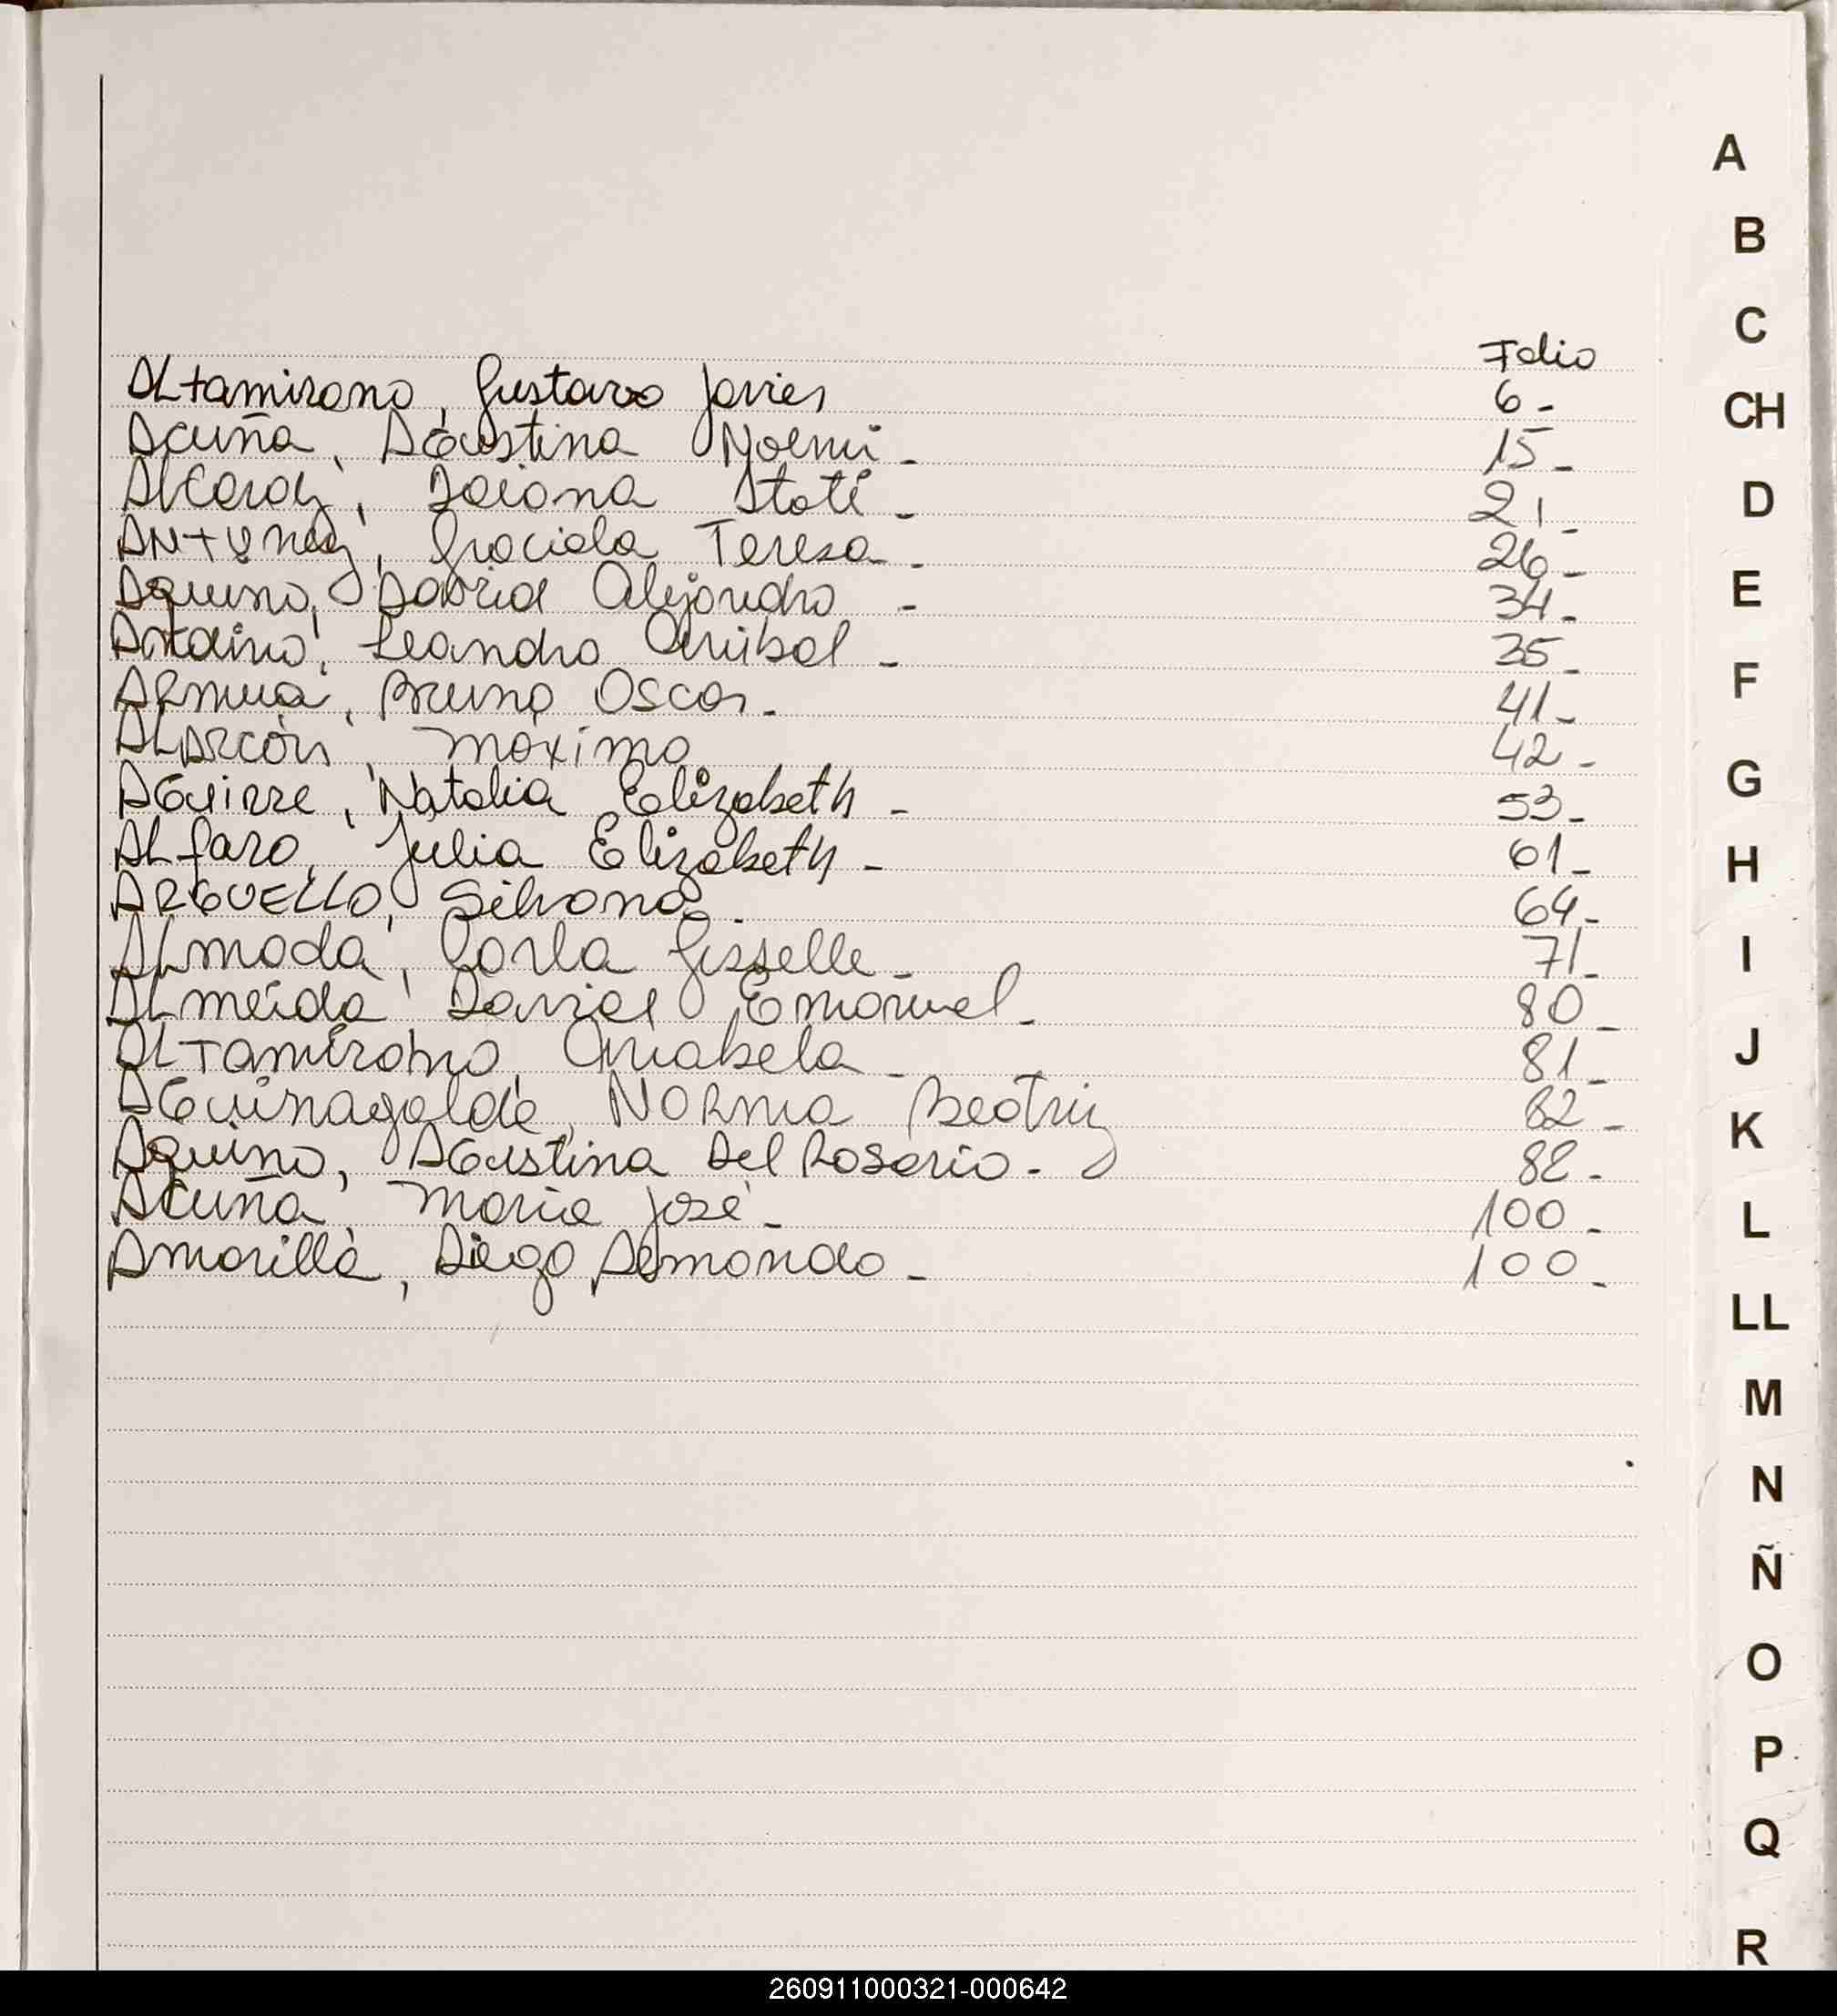 Folio
Altamirano, Gustavo Javier 6-
Acuña, Agustina Noemi - 15-
Alcaraz, Daiana Itati - 21-
Antunez, Graciela Teresa - 26-
Aquino, David Alejandro - 34-
Andino, Leandro Anibal - 35-
Armua, Bruno Oscar. 41-
Alarcón, Maximo 42-
Aguirre, Natalia Elizabeth - 53-
Alfaro, Julia Elizabeth - 61-
ARGUELLO, Silvana. 64-
Almada, Carla Gisselle - 71-
Almeida Daniel Emanuel - 80-
Altamirano, Anabela - 81-
Aguinagalde, Norma Beatriz 82-
Aquino, Agustina Del Rosario - 82-
Acuña, Maria José - 100-
Amarilla, Diego Armando - 100-
A
B
C
CH
D
E
F
G
H
I
J
K
L
LL
M
N
Ñ
O
P
Q
R
260911000321-000642